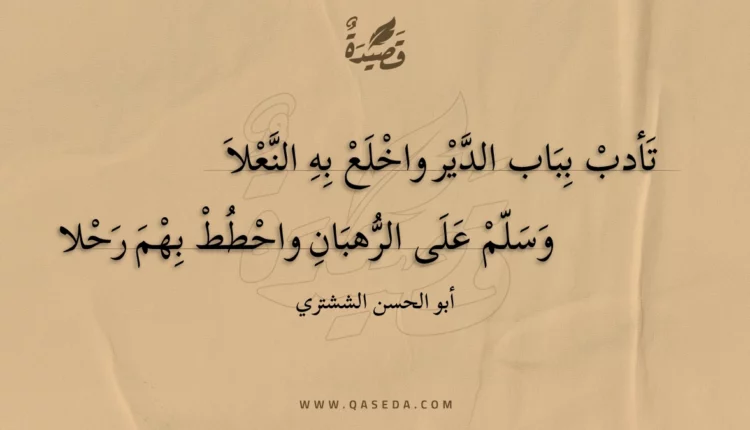 قَصِيدَةٌ
تَأدبْ بِبَاب الدَّيْر واخْلَعْ بِهِ النَّعْلاَ
وَسَلّمْ عَلَى الرُّهبَانِ واحْطُطْ بِهْمَ رَحْلا
أبو الحسن الششتري
WWW.QASEDA.COM